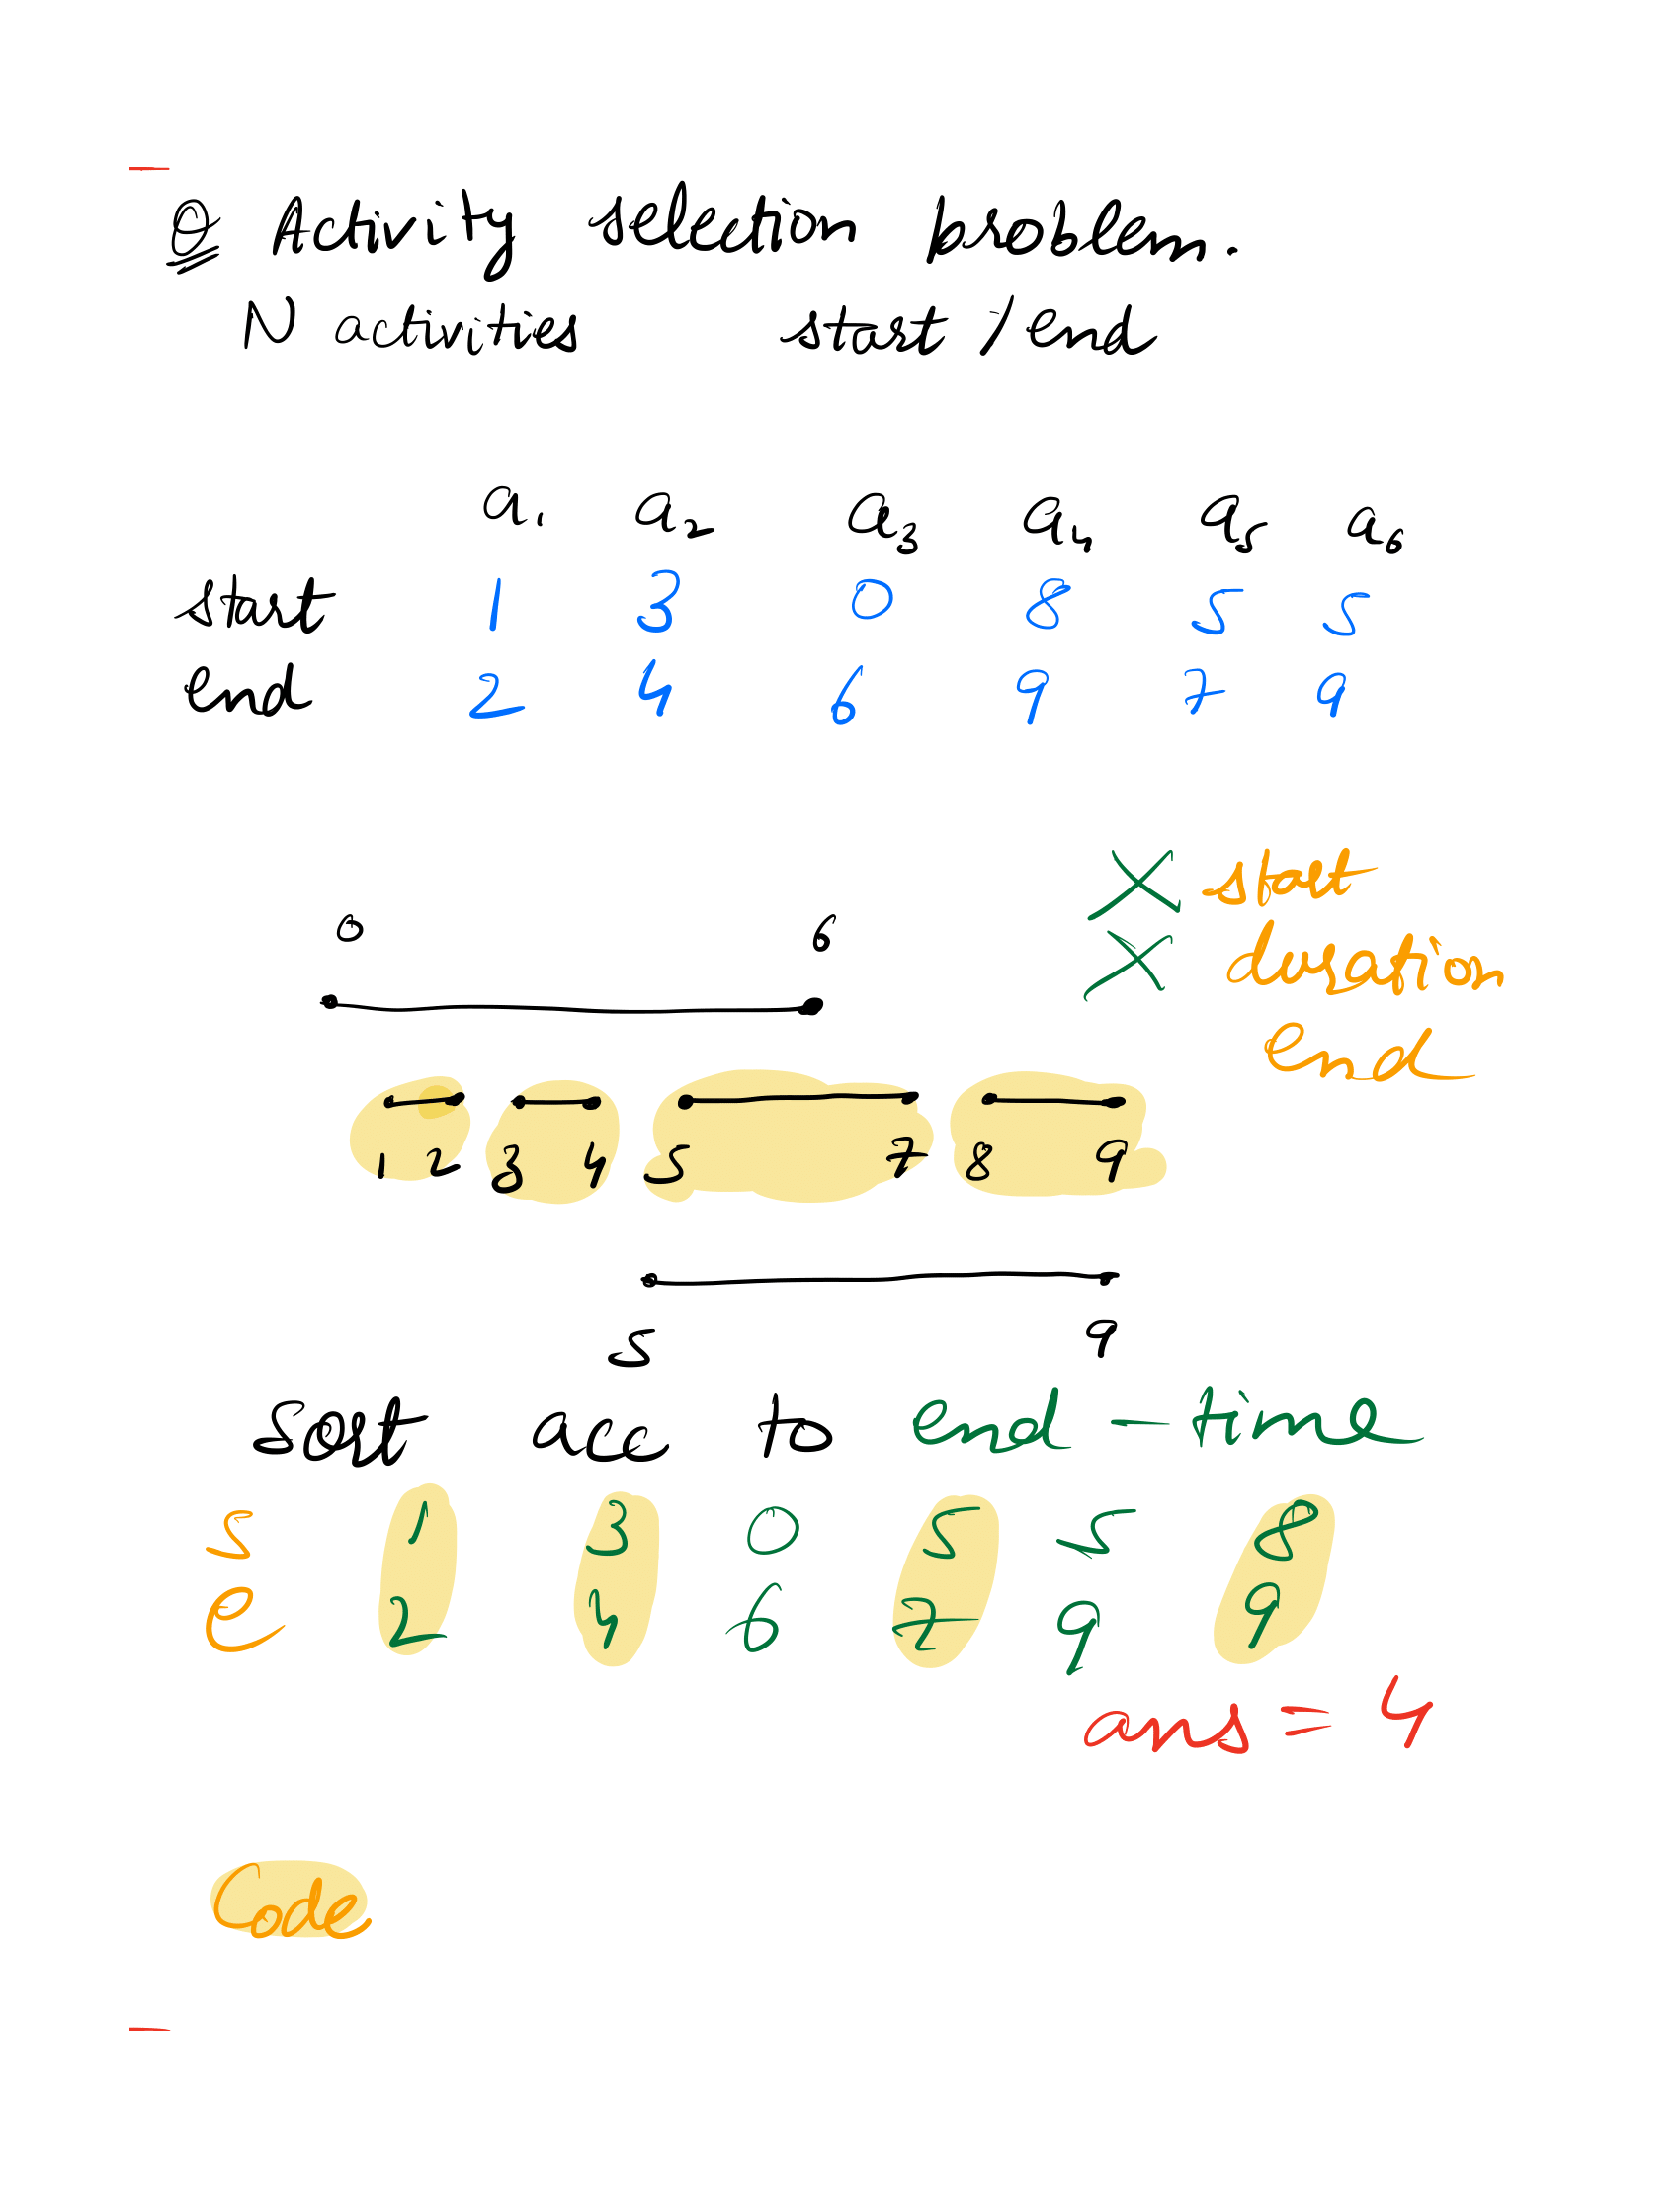 Q Activity selection problem.
N activities start / end
a1 a2 a3 a4 a5 a6
start 1 3 0 8 5 5
end 2 4 6 9 7 9
X start
X duration
end
0 6
1 2 3 4 5 7 8 9
5 9
Sort acc to end-time
S 1 3 0 5 5 8
e 2 4 6 7 9 9
ans = 4
Code